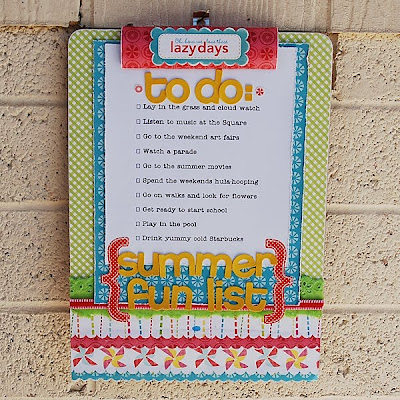 Oh, how we love those
lazy days
to do:
Lay in the grass and cloud watch
Listen to music at the Square
Go to the weekend art fairs
Watch a parade
Go to the summer movies
Spend the weekends hula-hooping
Go on walks and look for flowers
Get ready to start school
Play in the pool
Drink yummy cold Starbucks
{summer
fun list}